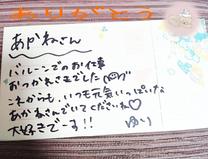 ありがとう
あかねさん
バルーンでのお仕事
おつかれさまでした
これからも、いつも元気いっぱいな
あかねさんでいてくださいね♡
大好きでーす!!
ゆり